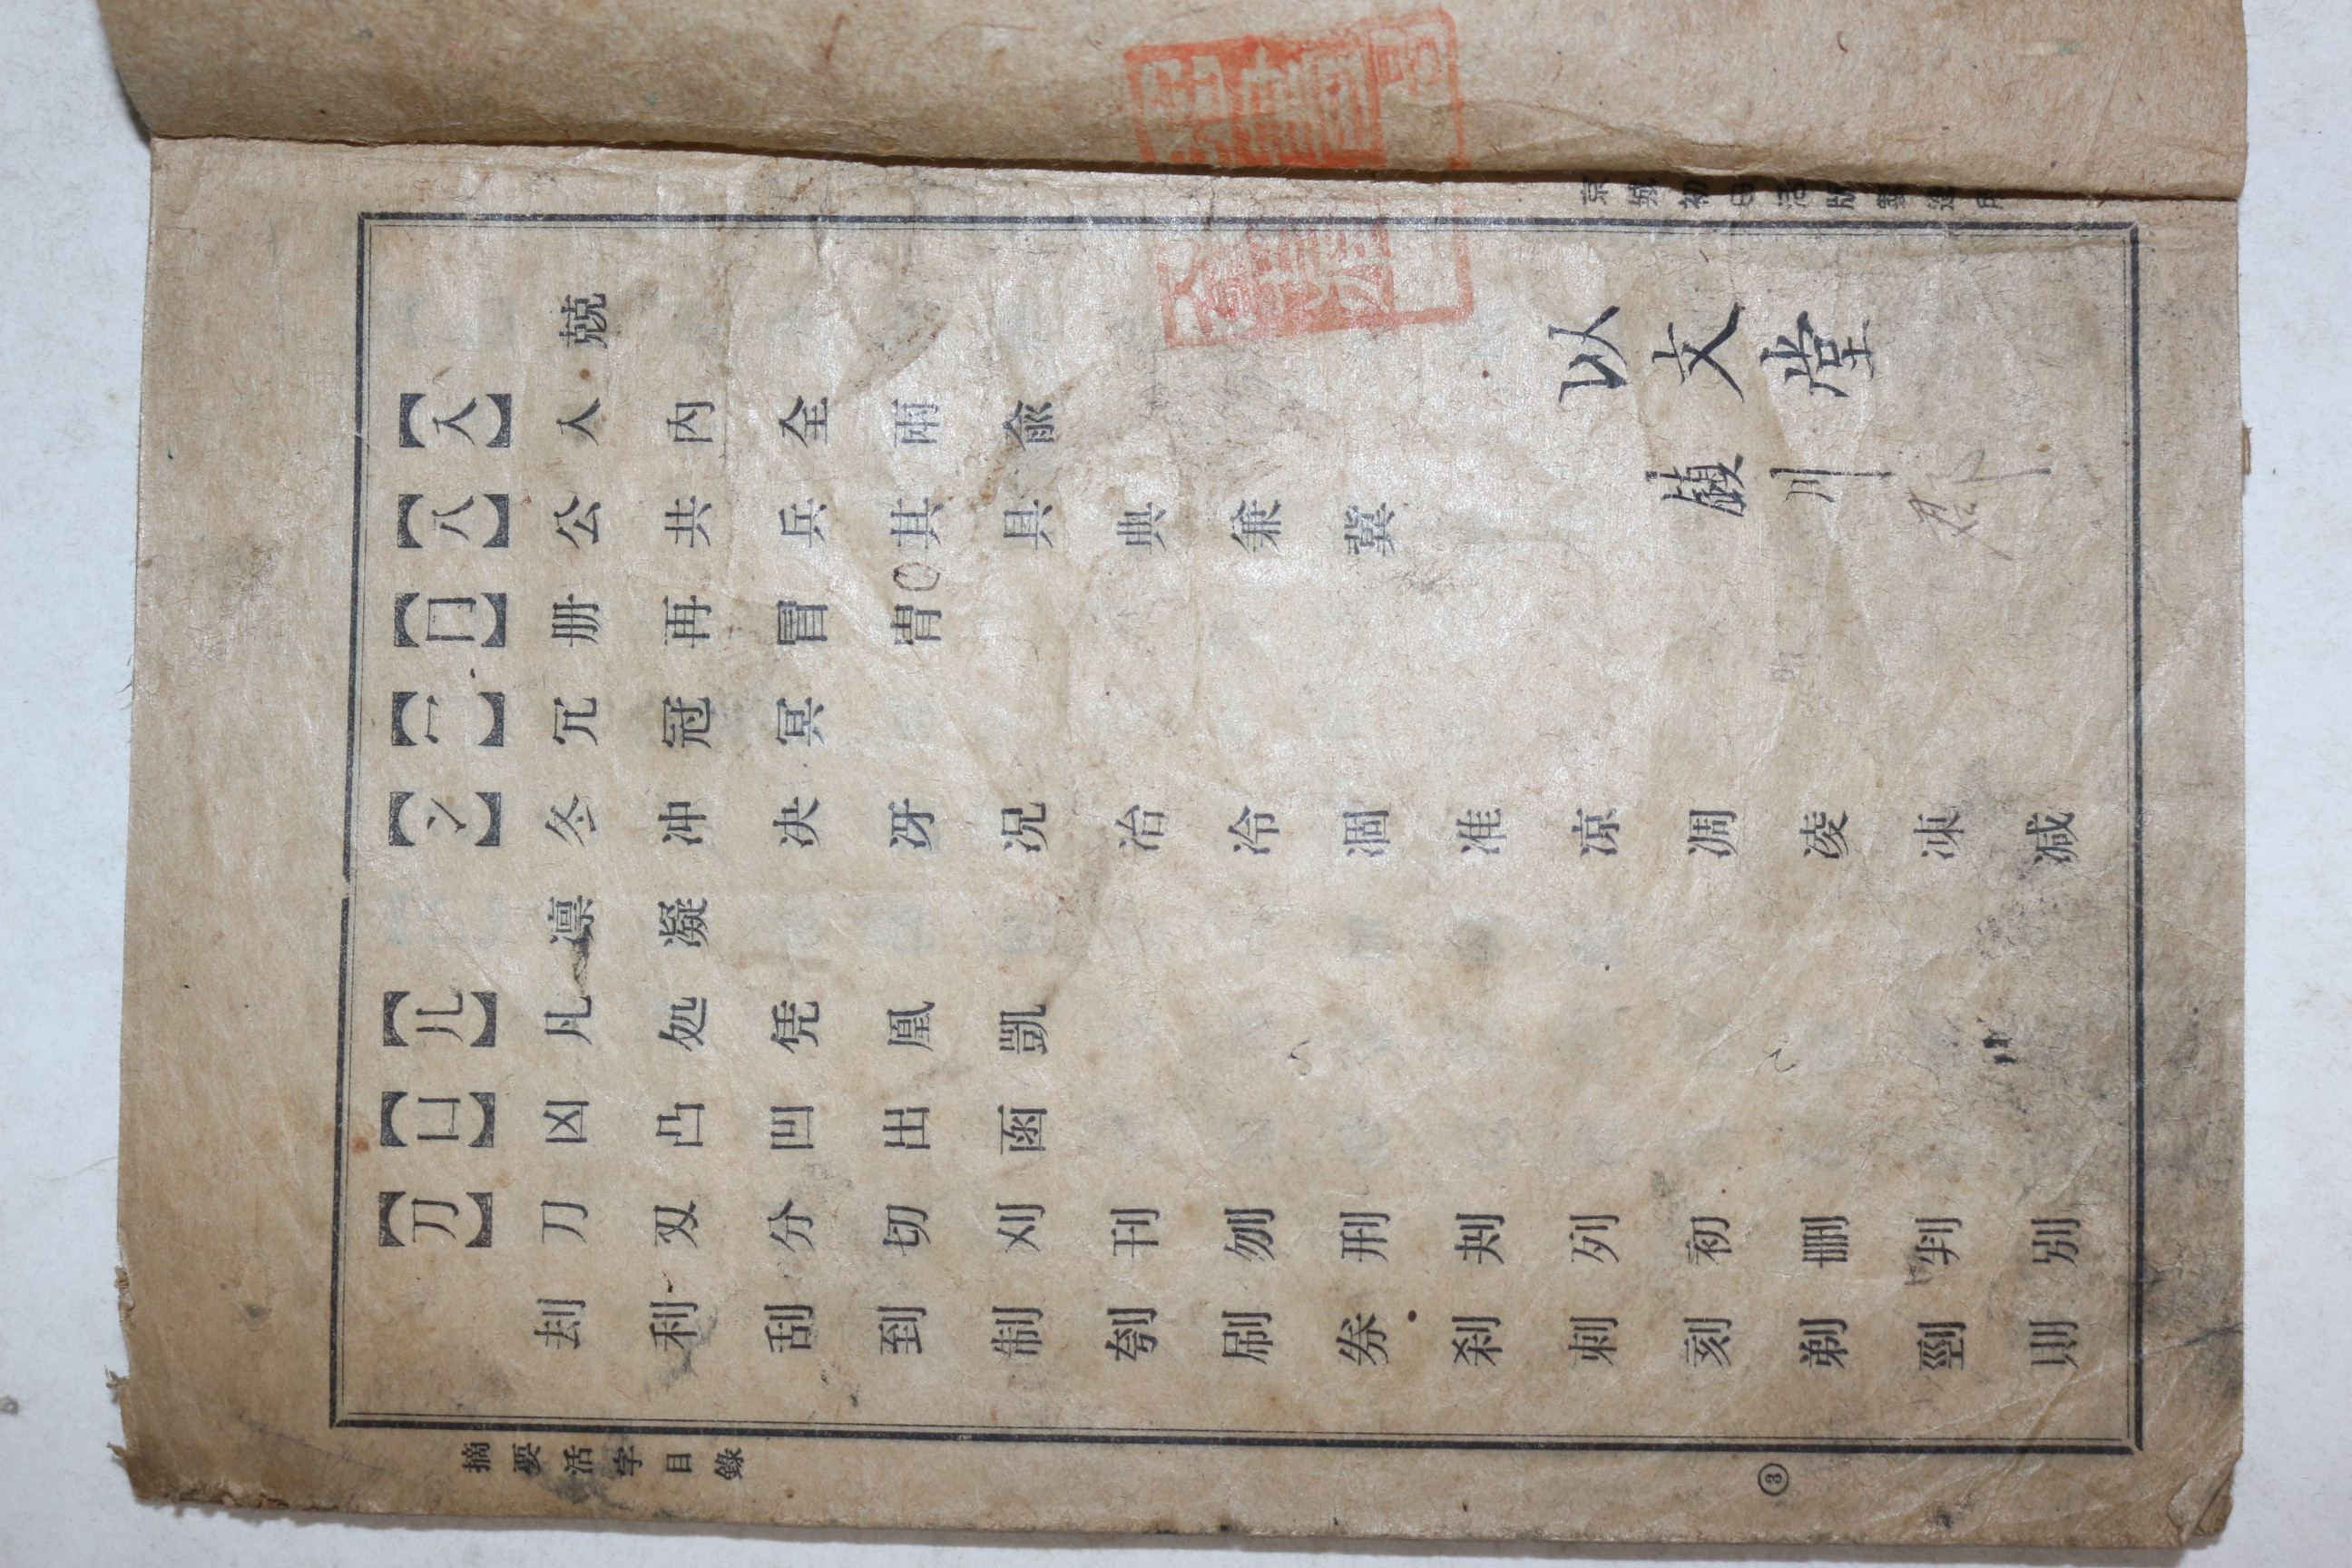 京城初日活版製造所
兢
【入】入內全兩兪
以文堂
【八】公共兵其具典兼冀
川
【冂】册再冒冑
【冖】冗冠冥
【冫】冬冲决冴况冶冷凅准凉凋凌凍减
凛凝
【几】凡処凭凰凱
【凵】凶凸凹出函
【刀】刀刄分切刈刊刎刑刔列初删判別
刦利刮到制刳刷券刹刺刻剃剄則
摘要活字目錄
③